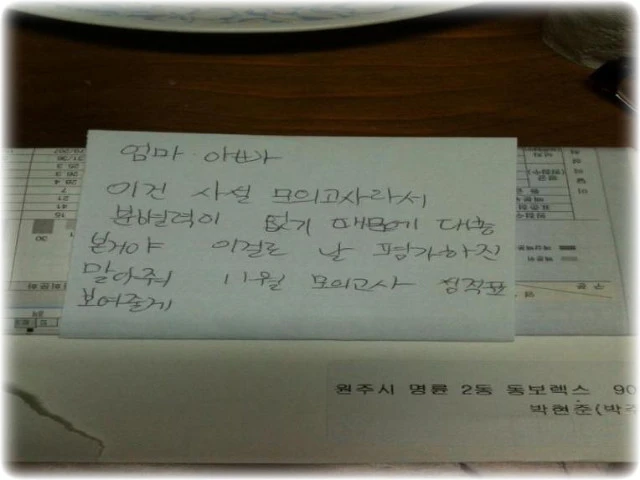 엄마 아빠
이건 사설 모의고사라서
분별력이 없기 때문에 대충
본거야 이걸로 날 평가하진
말아줘 11월 모의고사 성적표
보여줄게
원주시 명륜 2동 동보렉스 90
박현준(박주